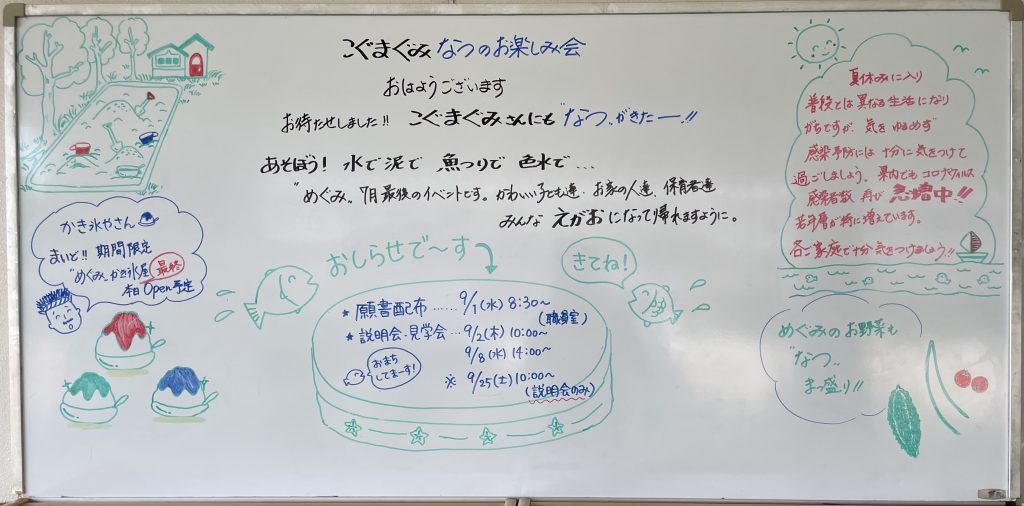 こぐまぐみ なつのお楽しみ会
おはようございます
お待たせしました!! こぐまぐみさんにも "なつ"がきたー!!
あそぼう! 水で泥で 魚つりで 色水で...
"めぐみ" 7月最後のイベントです。かわいい子ども達・お家の人達、保育者達
みんな えがおになって帰れますように。
かき氷やさん
まいど!! 期間限定
"めぐみ"かき氷屋 最終
本日Open予定
おしらせで〜す
きてね!
★ 願書配布 …… 9/1(水) 8:30〜
(職員室)
★ 説明会・見学会 … 9/2(木) 10:00〜
9/8(水) 14:00〜
おまち
してまーす!
※ 9/25(土) 10:00〜
(説明会のみ)
夏休みに入り
普段とは異なる生活になり
がちですが、気をゆるめず
感染予防には十分に気をつけて
過ごしましょう。県内でもコロナウィルス
感染者数 再び 急増中!!
若年層が特に増えています。
各ご家庭で十分気をつけましょう!!
めぐみのお野菜も
"なつ"
まっ盛り!!